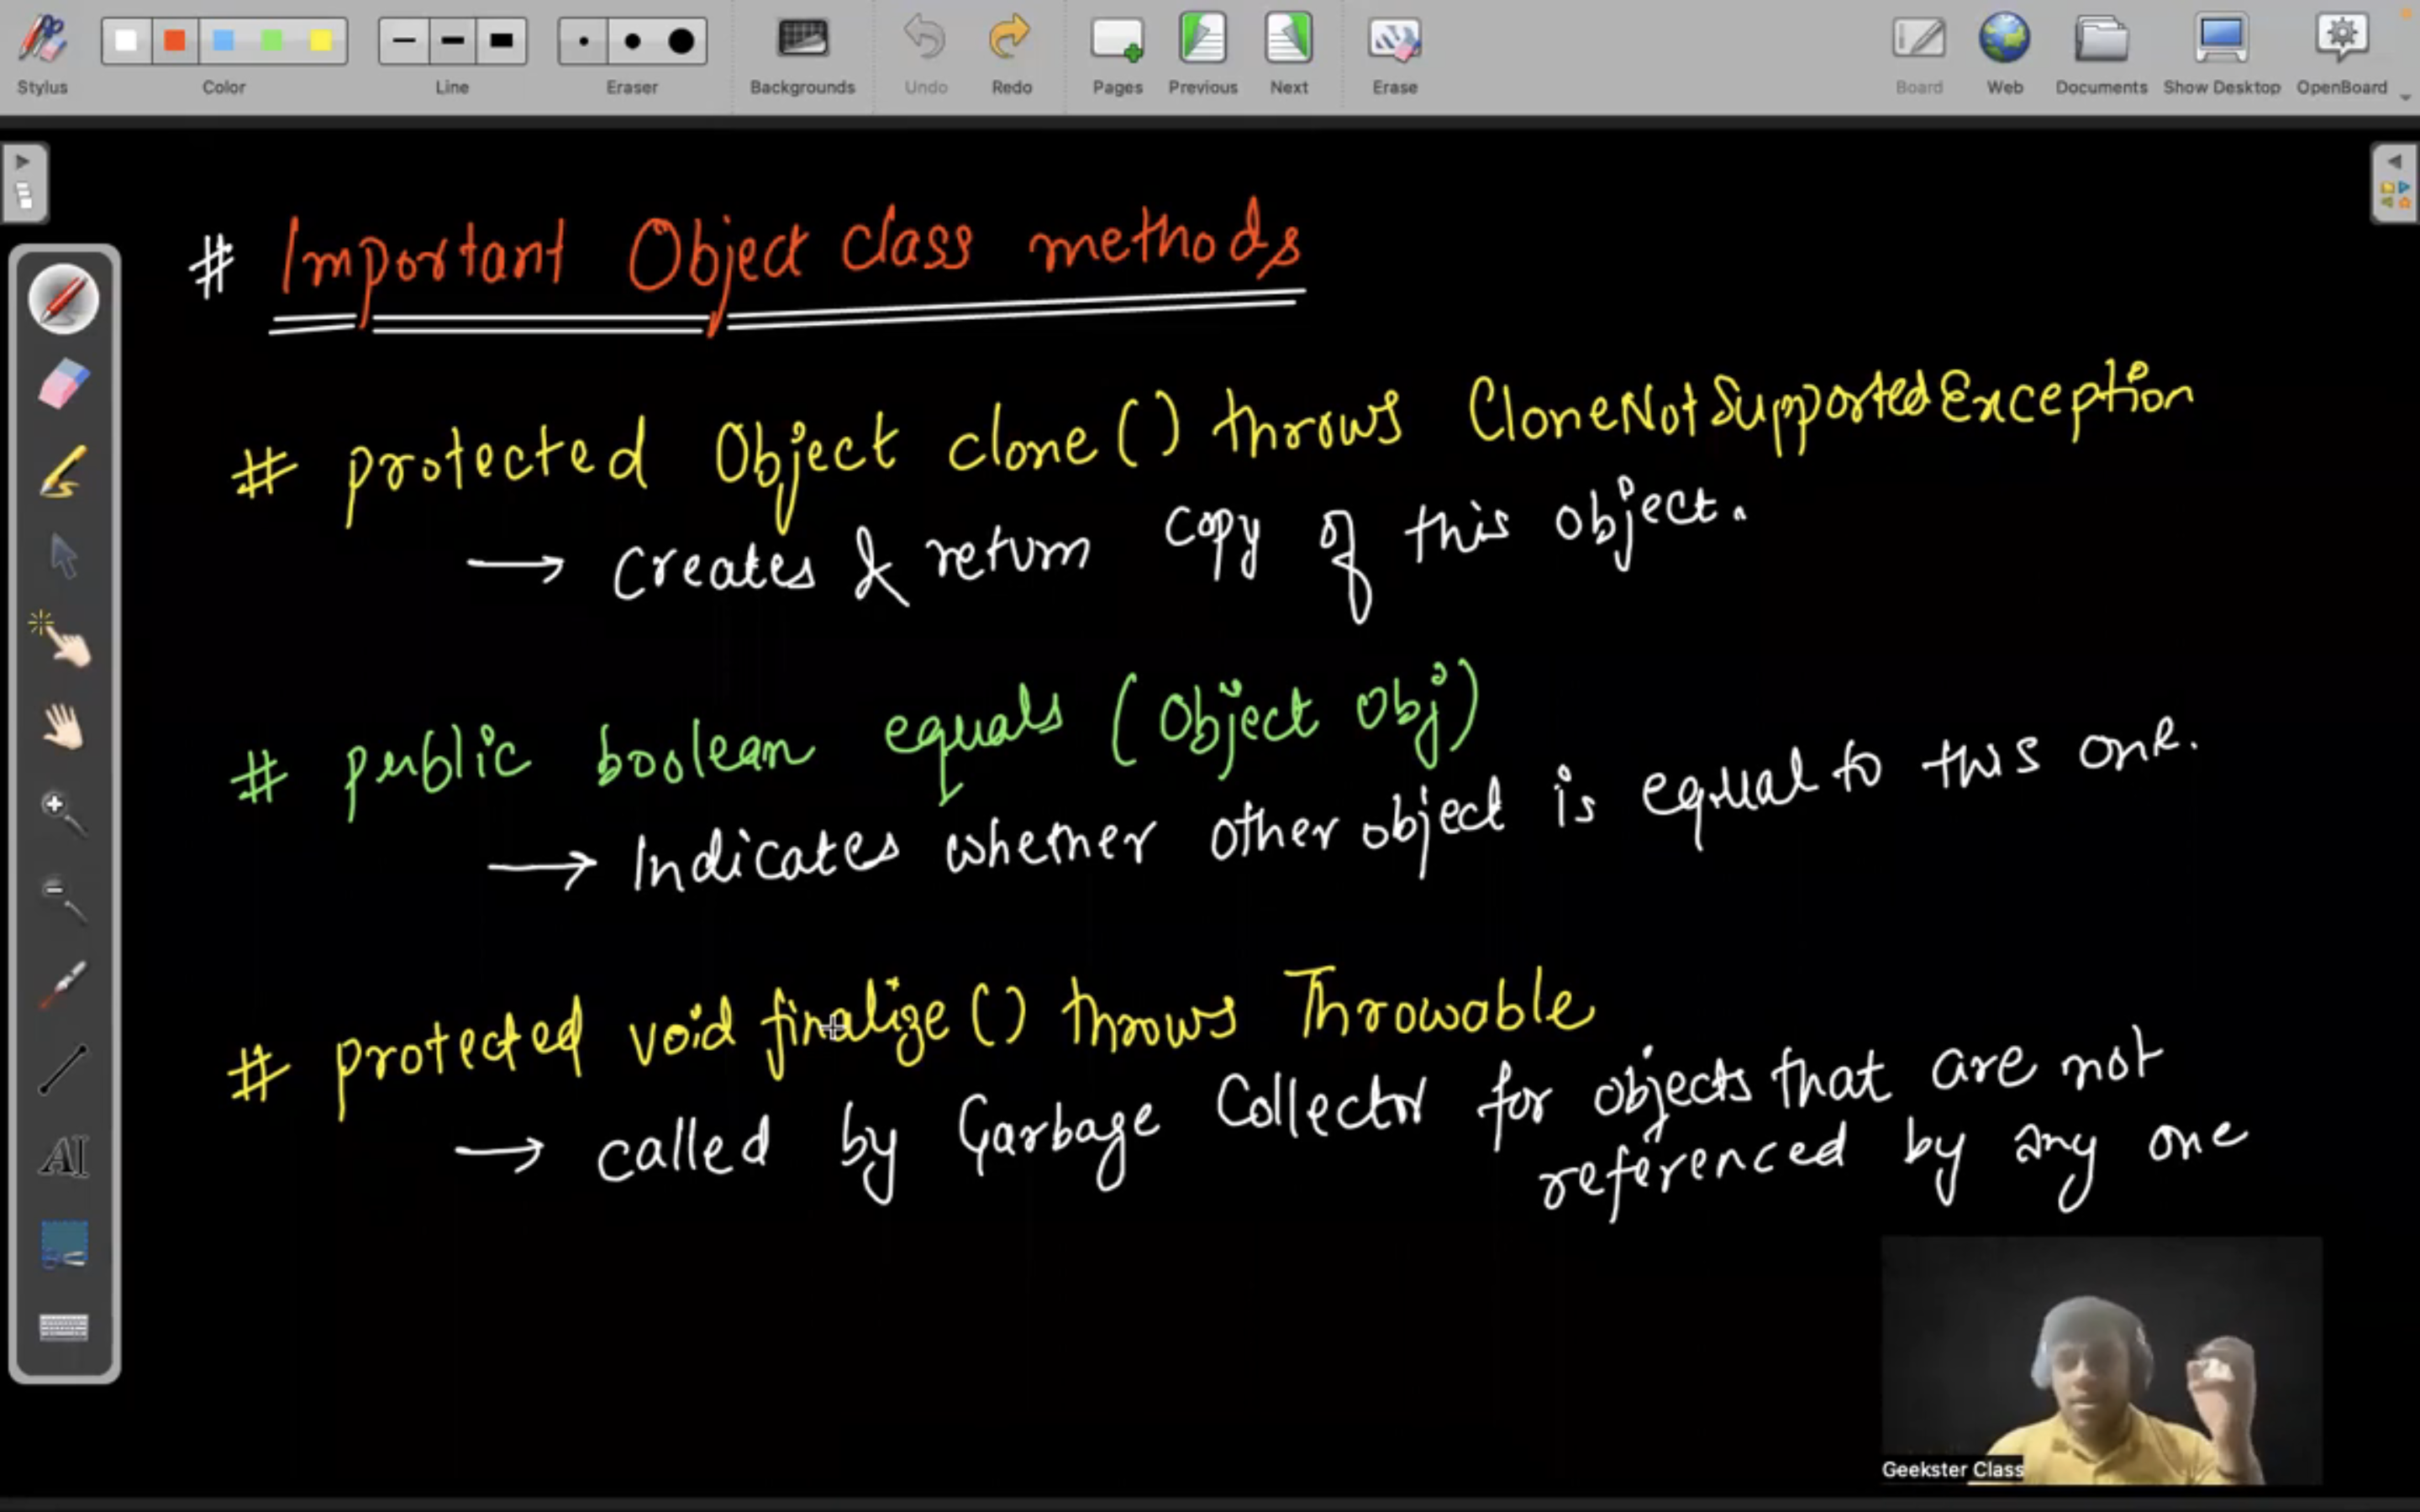 Stylus
Color
Line
Eraser
Backgrounds
Undo
Redo
Pages
Previous
Next
Erase
Board
Web
Documents
Show Desktop
OpenBoard
# Important Object class methods
# protected Object clone() throws CloneNotSupportedException
→ Creates & return copy of this object.
# public boolean equals (Object Obj)
→ Indicates whether other object is equal to this one.
# protected void finalize() throws Throwable
→ called by Garbage Collector for objects that are not
referenced by any one
AI
Geekster Class